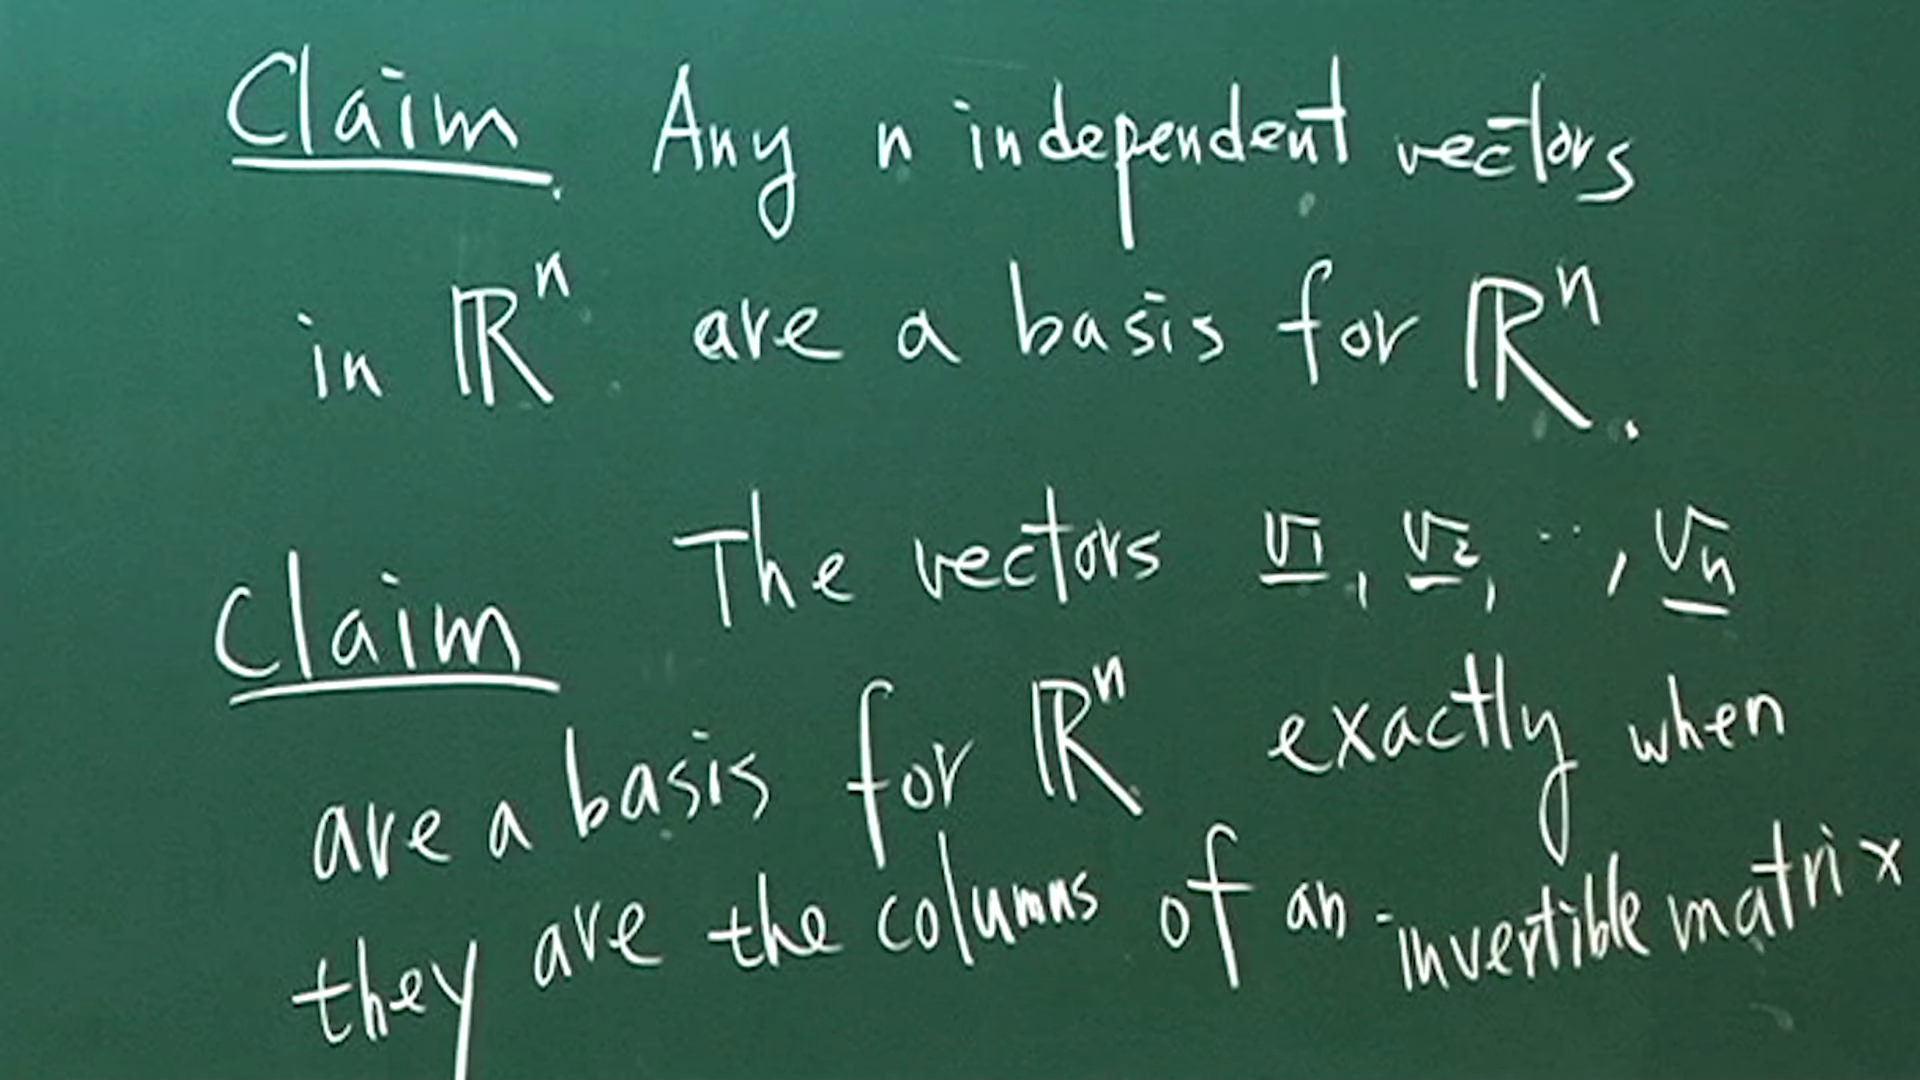 Claim. Any n independent vectors
in ℝⁿ are a basis for ℝⁿ.
Claim The vectors v₁, v₂, ..., vₙ
are a basis for ℝⁿ exactly when
they are the columns of an invertible matrix